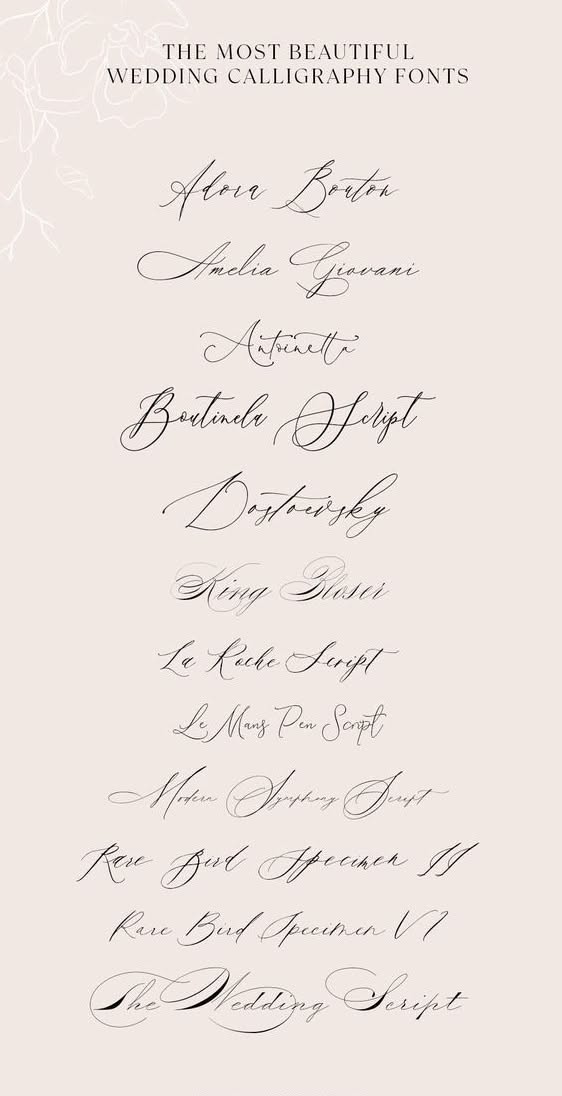 THE MOST BEAUTIFUL
WEDDING CALLIGRAPHY FONTS
Adora Bouton
Amelia Giovani
Antoinetta
Boutinela Script
Dostoevsky
King Bloser
La Roche Script
Le Mans Pen Script
Modern Symphony Script
Rare Bird Specimen II
Rare Bird Specimen VI
The Wedding Script